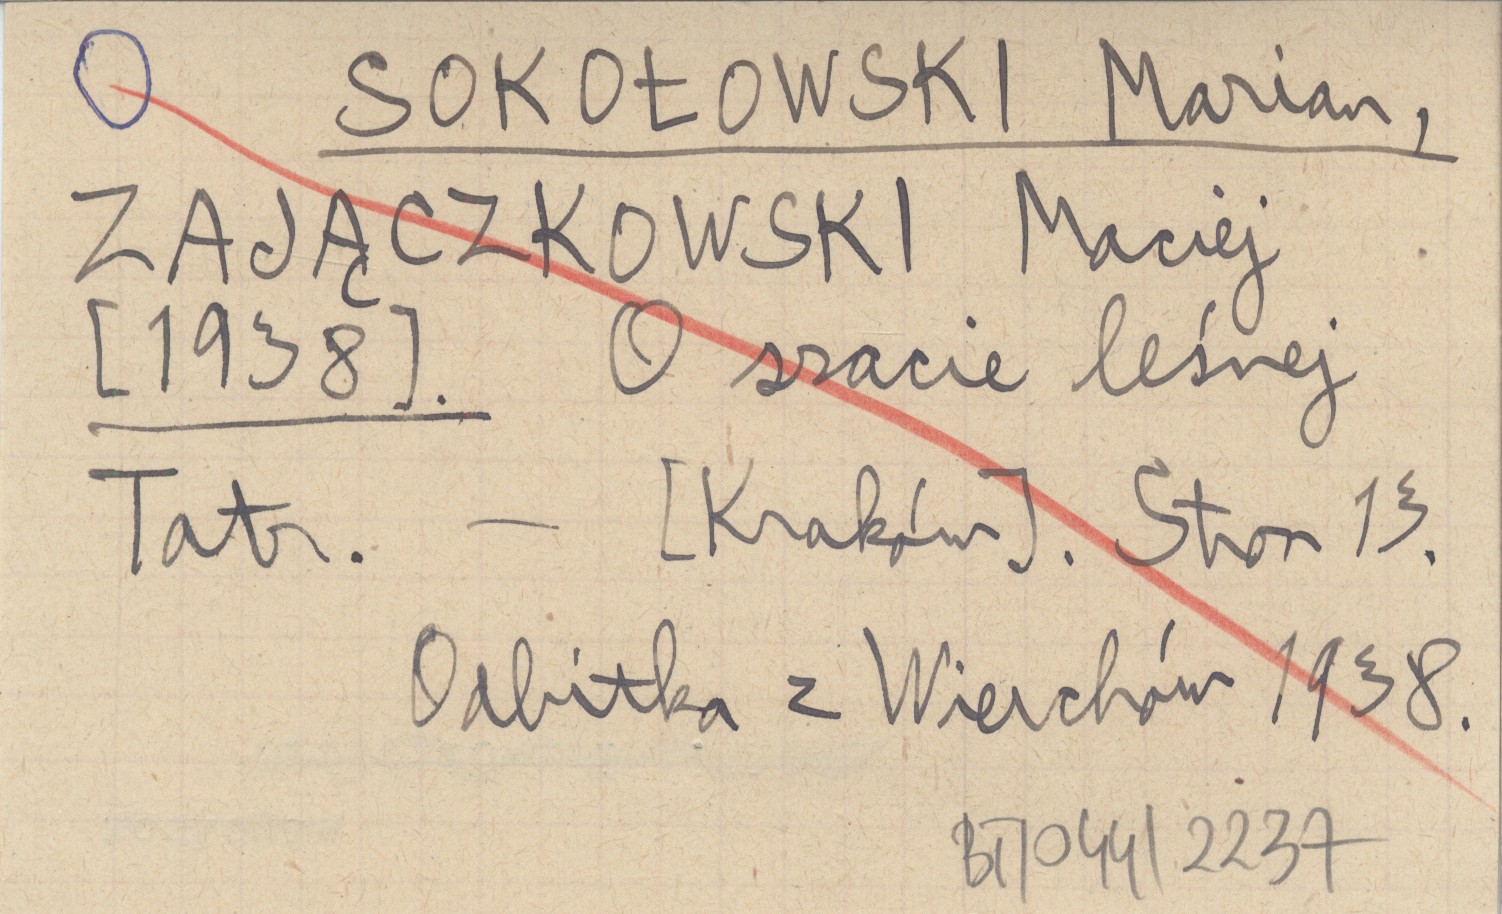 O SOKOŁOWSKI Marian,
ZAJĄCZKOWSKI Maciej
[1938]. O szacie leśnej
Tatr. — [Kraków]. Stron 13.
Odbitka z Wierchów 1938.
BT/044/2237